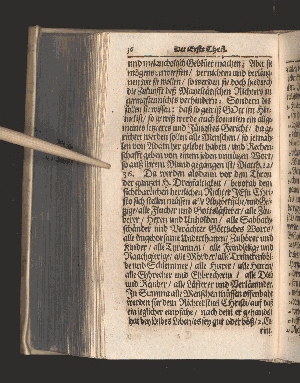 36 Der Erste Theil.
und melancholisch Geblüte machen; Aber sie
mögens verwerffen / vernichten und verläug-
nen wie sie wollen / so werden sie doch hiedurch
die Zukunfft deß
nicht verhindern: Sondern
sollen sie wissen: daß so gewiß GOtt im Him-
mel ist / so gewiß werde auch kommen ein allge-
meines letztes und Jüngstes Gericht / da ge-
richtet werden sollen alle Menschen / so jemah-
len von Adam her gelebet haben / und Rechen-
schafft geben von einem jeden unnützen Wort /
so auß ihrem Mund gegangen ist / Matth. 12/
36. Da werden alsdann vor dem Thron
der gantzen H. Dreyfaltigkeit / bevorab dem
sichtbarlichen herrlichen Richter JEsu Chri-
sto sich stellen müssen alle Abgöttische und
alle Flucher und Gottslästerer / alle Zau-
berer / Hexen und Unholden / alle Sabbath-
schänder und Verächter Göttliches Worts /
alle ungehorsame Unterthanen / Subjecte und
Kinder / alle Tyrannen / alle Feindselige und
Rachgierige / alle Mörder / alle Trunckenbol-
de und Schlemmer / alle Hurer / alle Huren /
alle Schrecher und Ehbrecherin / alle Dieb
und Rauber / alle Lästerer und Verläumbder.
In Summa alle Menschen müssen offenbahr
werden für dem Richterstuel Christi / auf daß
ein jeglicher empfahe / nach dem er gehandelt
hat bey Leibes Leben / es sey gut oder böß / 2. Co-
rint.